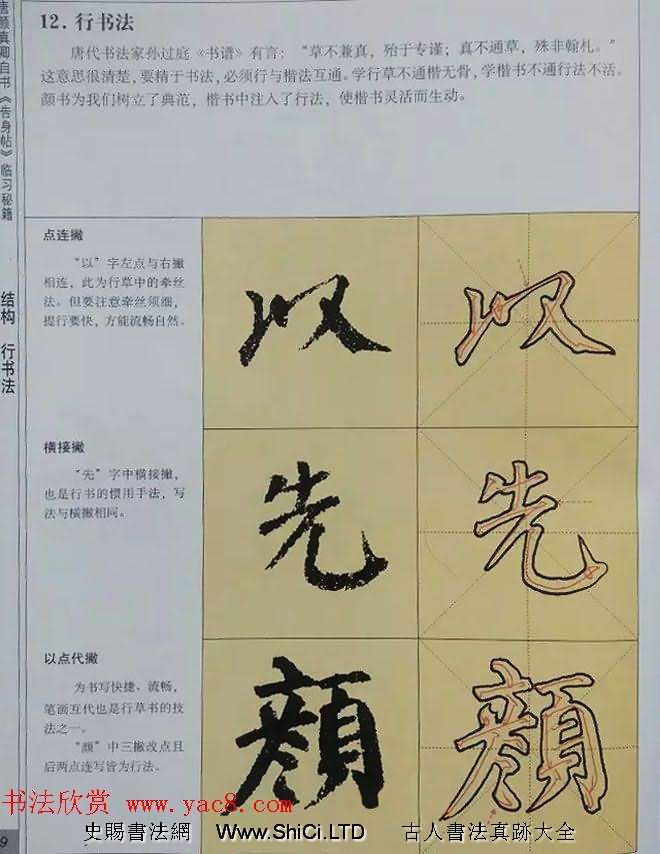 12. 行书法
唐代书法家孙过庭《书谱》有言：“草不兼真，殆于专谨；真不通草，殊非翰札。”
这意思很清楚，要精于书法，必须行与楷法互通。学行草不通楷无骨，学楷书不通行法不活。
颜书为我们树立了典范，楷书中注入了行法，使楷书灵活而生动。
唐颜真卿自书《告身帖》临习秘籍
结构 行书法
点连撇
“以”字左点与右撇
相连，此为行草中的牵丝
法。但要注意牵丝须细，
提行要快，方能流畅自然。
以
以
横接撇
“先”字中横接撇，
也是行书的惯用手法，写
法与横撇相同。
先
先
以点代撇
为书写快捷、流畅，
笔画互代也是行草书的技
法之一。
“颜”中三撇改点且
后两点连写皆为行法。
顏
顏
书法欣赏 www.yac8.com
9
史賜書法網 Www.ShiCi.LTD 古人書法真跡大全